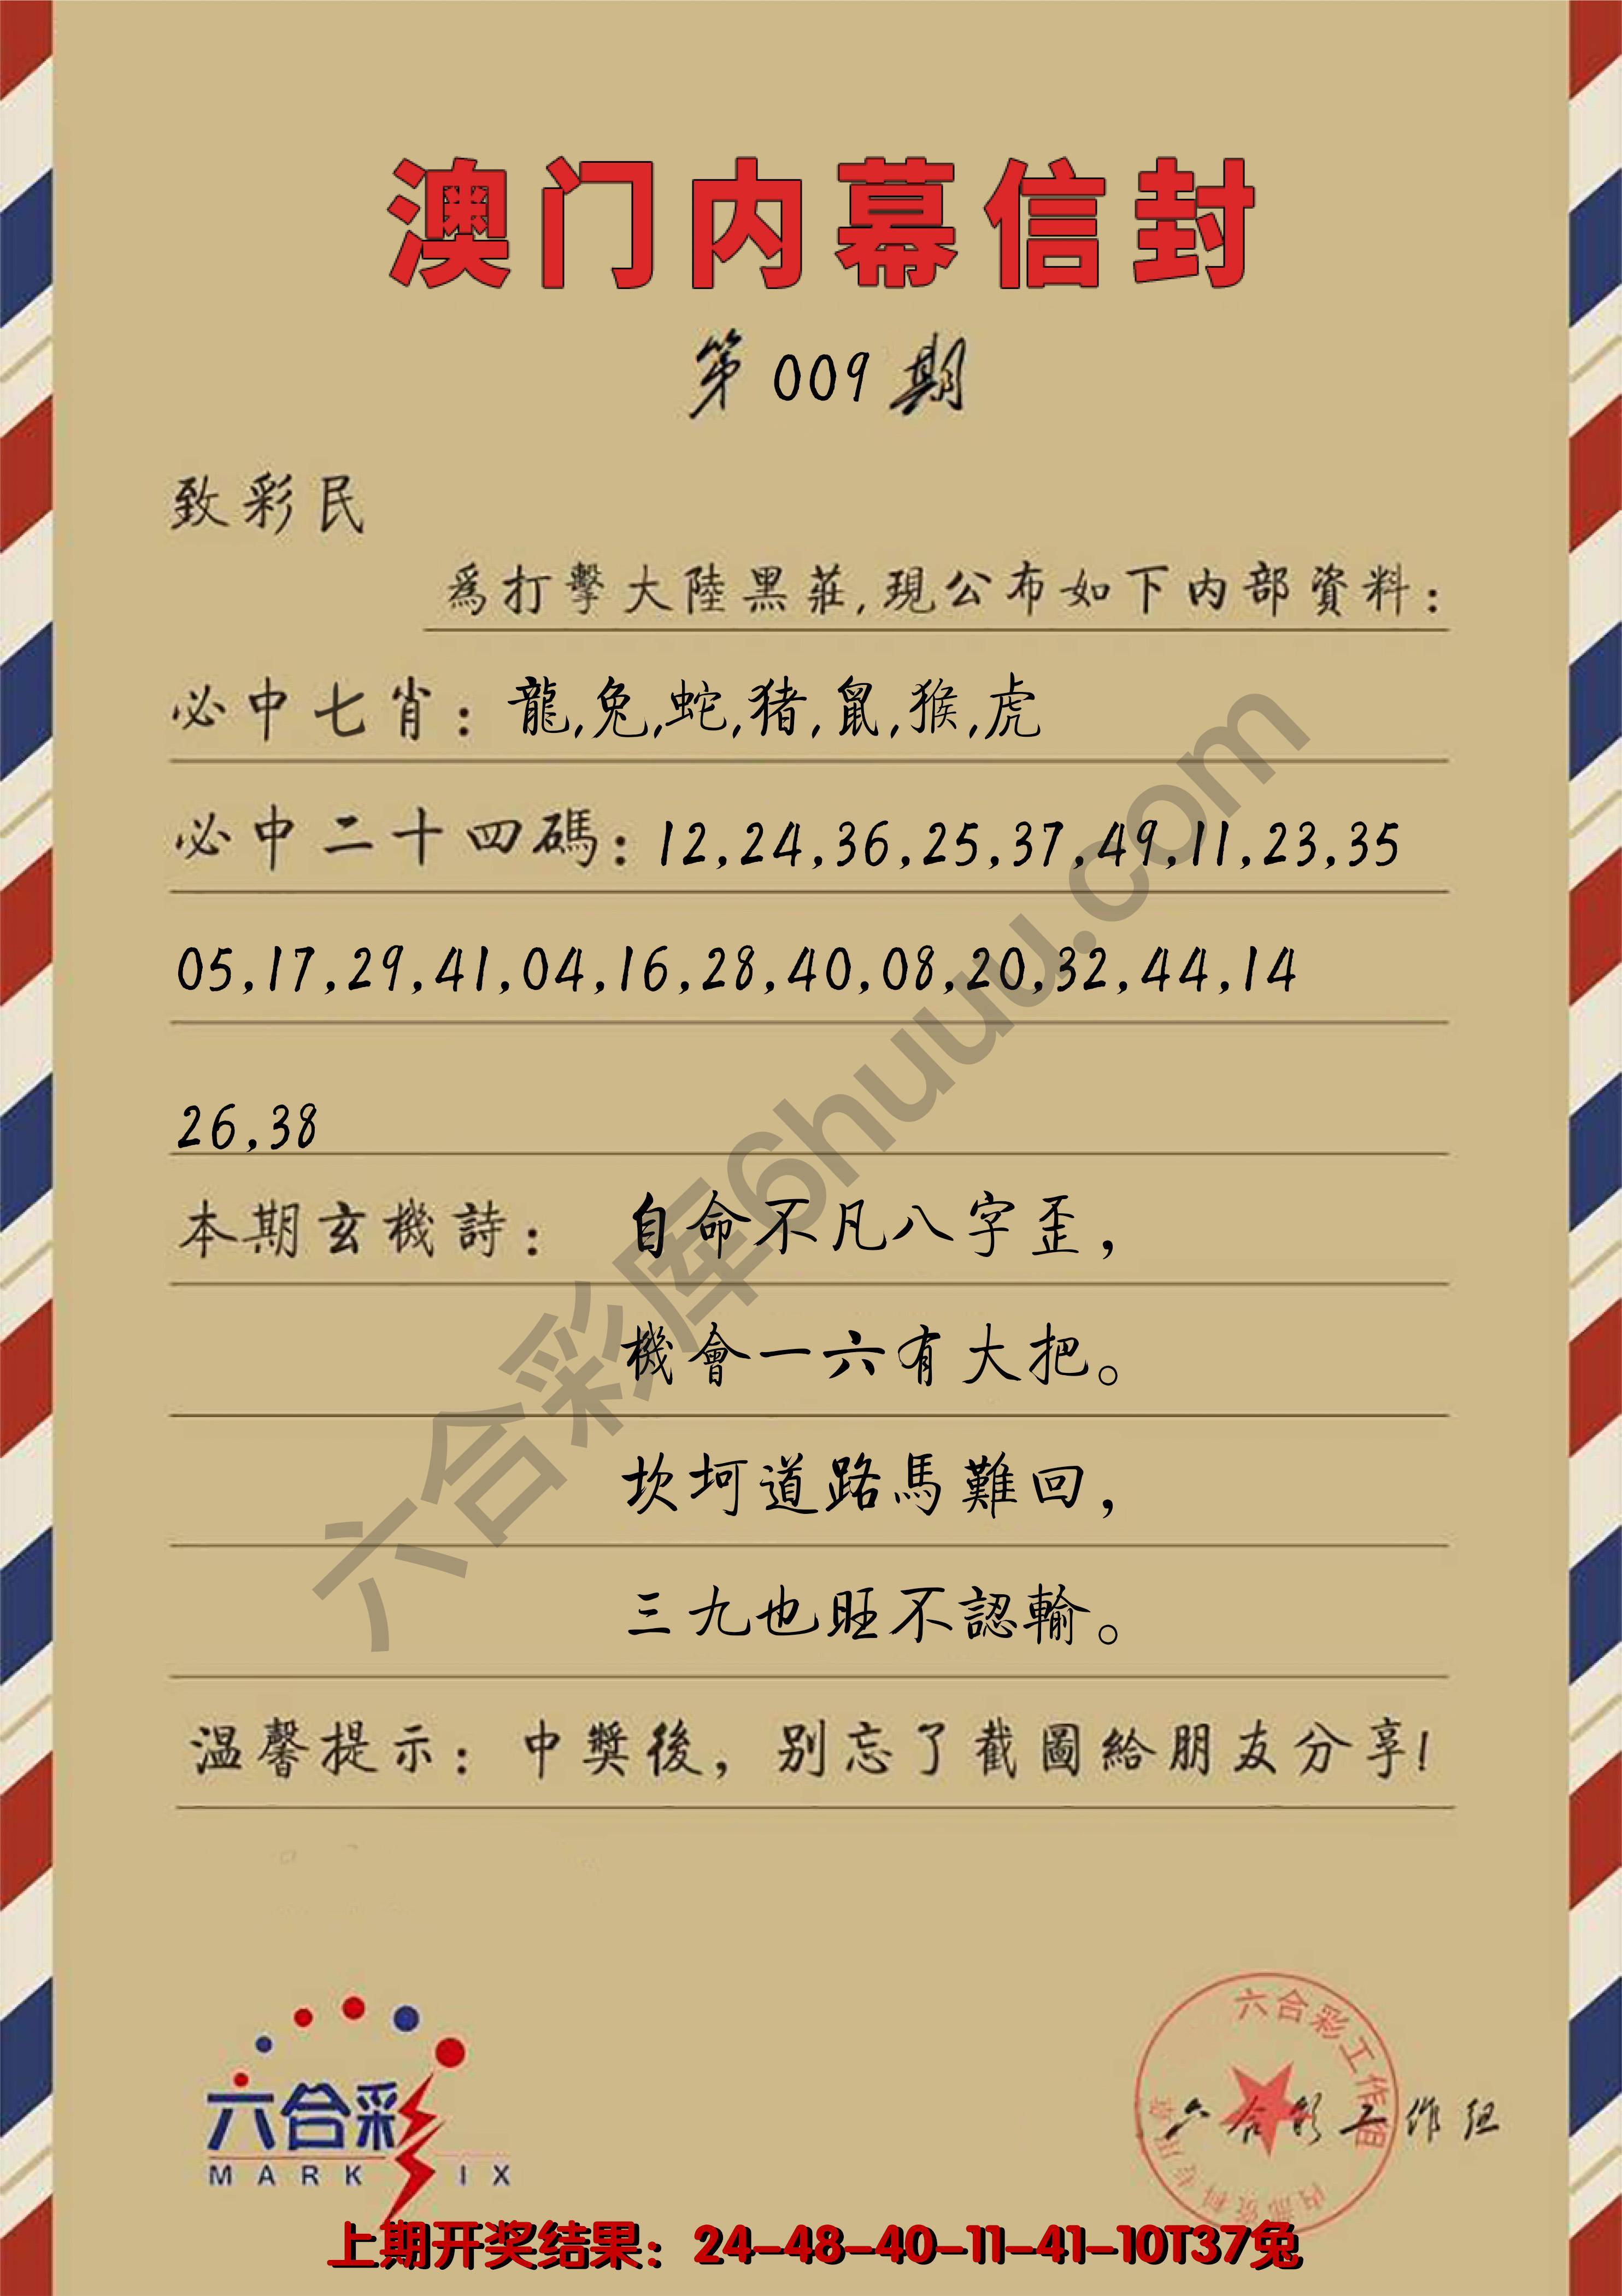 澳门内幕信封
第009期
致彩民
爲打擊大陸黑莊,現公布如下内部資料:
必中七肖: 龍,兔,蛇,猪,鼠,猴,虎
必中二十四碼: 12,24,36,25,37,49,11,23,35
05,17,29,41,04,16,28,40,08,20,32,44,14
26,38
本期玄機詩: 自命不凡八字歪,
機會一六有大把。
坎坷道路馬難回,
三九也旺不認輸。
温馨提示: 中獎後, 别忘了截圖給朋友分享!
六合彩库6huuu.com
六合彩
MARK IX
六合彩工作组
六合彩工作组
上期开奖结果: 24-48-40-11-41-10T37兔